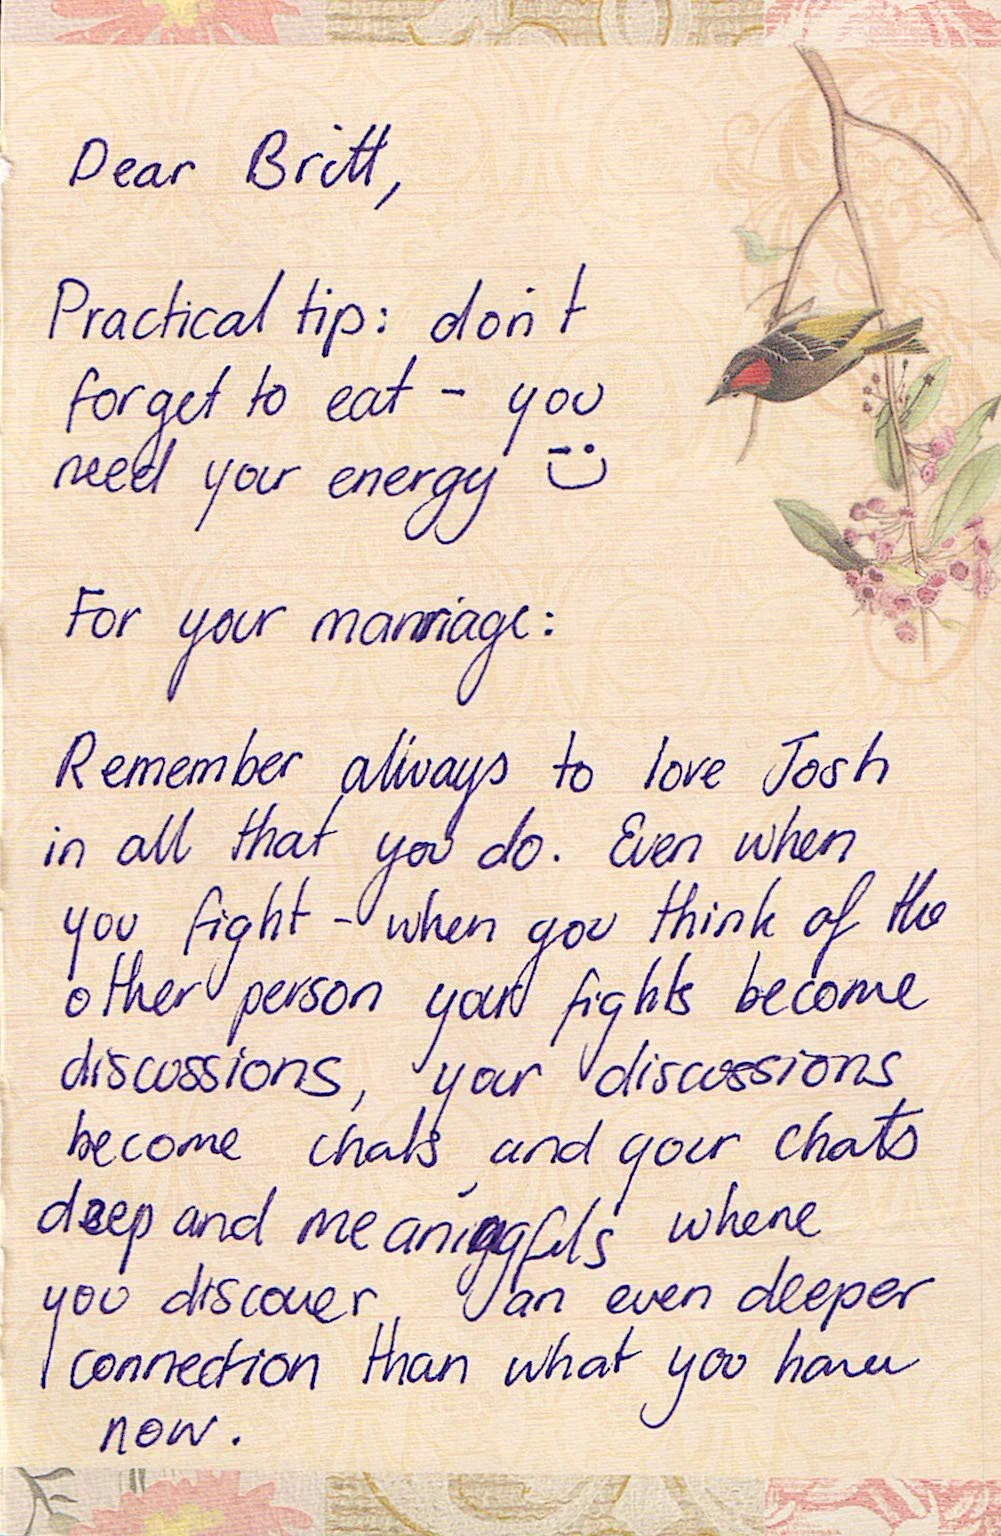 Dear Britt,
Practical tip: don't
forget to eat - you
need your energy
For your marriage:
Remember always to love Josh
in all that you do. Even when
you fight - when you think of the
other person your fights become
discussions, your discussions
become chats and your chats
deep and meaningfuls where
you discover an even deeper
connection than what you have
now.